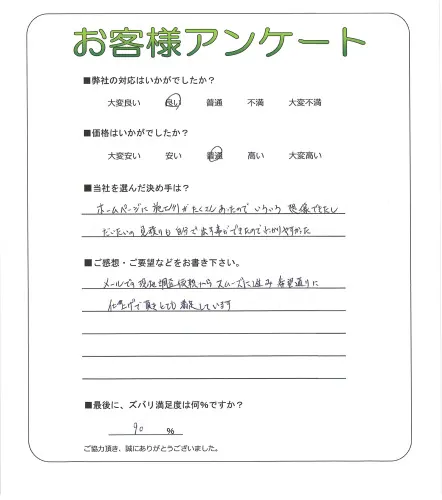 お客様アンケート
■弊社の対応はいかがでしたか？
大変良い 良い 普通 不満 大変不満
■価格はいかがでしたか？
大変安い 安い 普通 高い 大変高い
■当社を選んだ決め手は？
ホームページに施工例がたくさんあったのでいろいろ想像できたし
だいたいの見積りも自分で出す事ができたのでわかりやすかった
■ご感想・ご要望などをお書き下さい。
メールでの現地調査依頼からスムーズに進み希望通りに
仕上げて頂きとても満足しています
■最後に、ズバリ満足度は何％ですか？
90 ％
ご協力頂き、誠にありがとうございました。